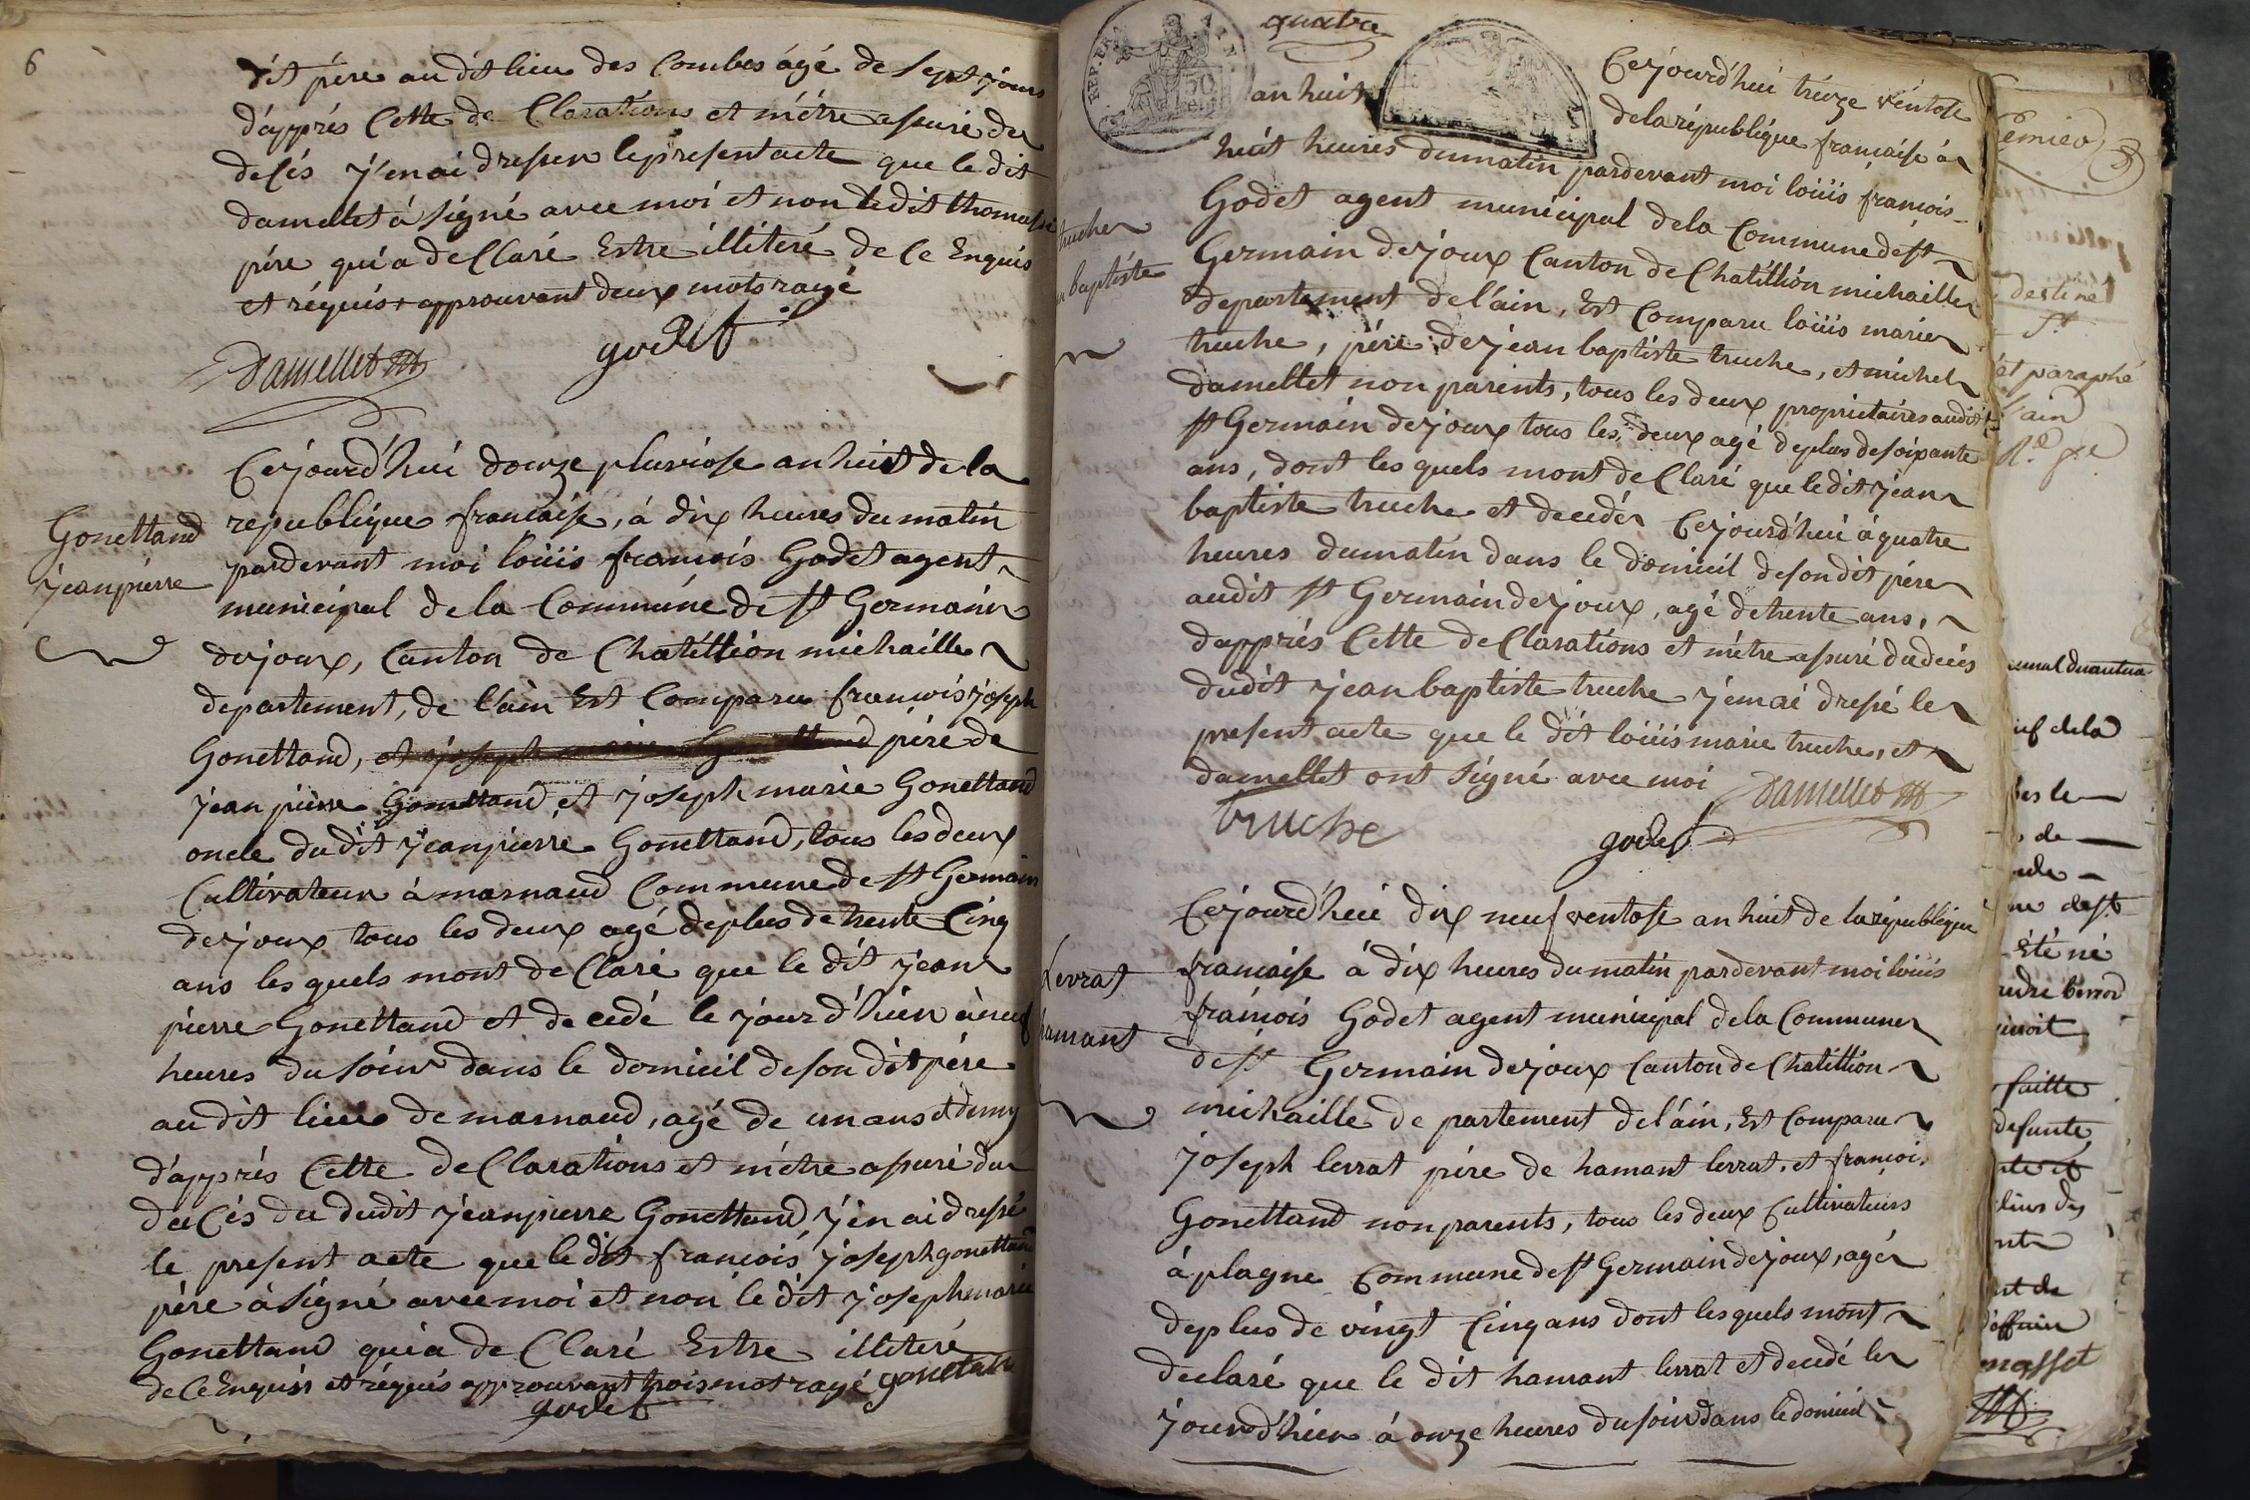 6
dit père au dit lieu des Combes âgé de sept jours
d'apprés Cette de Clarations et m'étre assuré du
desés j'en ai dresser le present acte que le dit
damellet à signé avec moi et non le dit thomasset
pére qui a de Claré Estre illiteré de Ce Enquis
et réquis + approuvant deux mots rayé
Damellet godet
Gonettand
jeanpierre
Cejourd'hui douze pluviose an huit de la
republique francaise, à dix heures du matin
pardevant moi loüis francois Godet agent
municipal de la Commune de st Germain
dejoux, Canton de Chatillion michaille
departement, de l'ain Est Comparu francois joseph
Gonettand, et joseph père de
jean pierre Gonettand et joseph marie Gonettand
oncle du dit jeanpierre Gonettand, tous les deux
Cultivateur à marnaud Commune de st Germain
dejoux tous les deux agé deplus de trente Cinq
ans les quels mont de Claré que le dit jean
pierre Gonettand et decedé le jour d'hier à neuf
heures du soir dans le domicil deson dit père
au dit lieu de marnaud, agé de un ans et demy
d'apprés Cette de Clarations et m'étre assuré du
deCés du dudit jeanpierre Gonettand j'en ai dressé
le present acte que le dit francois joseph gonettand
pére à signé avec moi et non le dit joseph marie
Gonettand qui a de Claré Estre illiteré
de Ce Enquis et réquis approuvant trois mot rayé gonettand
godet
quatre
REP. FRA
50
Cejourd'hui treize ventose
an huit de la république francaise à
huit heures du matin pardevant moi loüis francois
Godet agent municipal de la Commune de st
Germain dejoux Canton de Chatillion michaille
departement de l'ain, Est Comparu loüis marie
truche, pére de jean baptiste truche, et michel
damellet non parents, tous les deux proprietaires audit
st Germain dejoux tous les deux agé deplus de soixante
ans, dont les quels mont de Claré que le dit jean
baptiste truche et decedé Cejourd'hui à quatre
heures du matin dans le domicil deson dit pére
audit st Germain dejoux, agé de trente ans,
d'apprés Cette de Clarations et m'étre assuré du decés
dudit jean baptiste truche j'en ai dressé le
present acte que le dit loüis marie truche, et
damellet ont signé avec moi Damellet
truche godet
truche
baptiste
Levrat
hamant
Cejourd'hui dix neuf ventose an huit de la république
francaise à dix heures du matin pardevant moi loüis
francois Godet agent municipal de la Commune
de st Germain dejoux Canton de Chatillion
michaille de partement de l'ain, Est Comparu
joseph levrat pére de hamant levrat, et francois
Gonettand non parents, tous les deux Cultivateurs
à plagne Commune de st Germain dejoux, agé
deplus de vingt Cinq ans dont les quels mont
declaré que le dit hamant levrat et decedé le
jour d'hier à onze heures du soir dans le domicil
destiné
et paraphé
l'ain
de la
été né
faitte
defunte